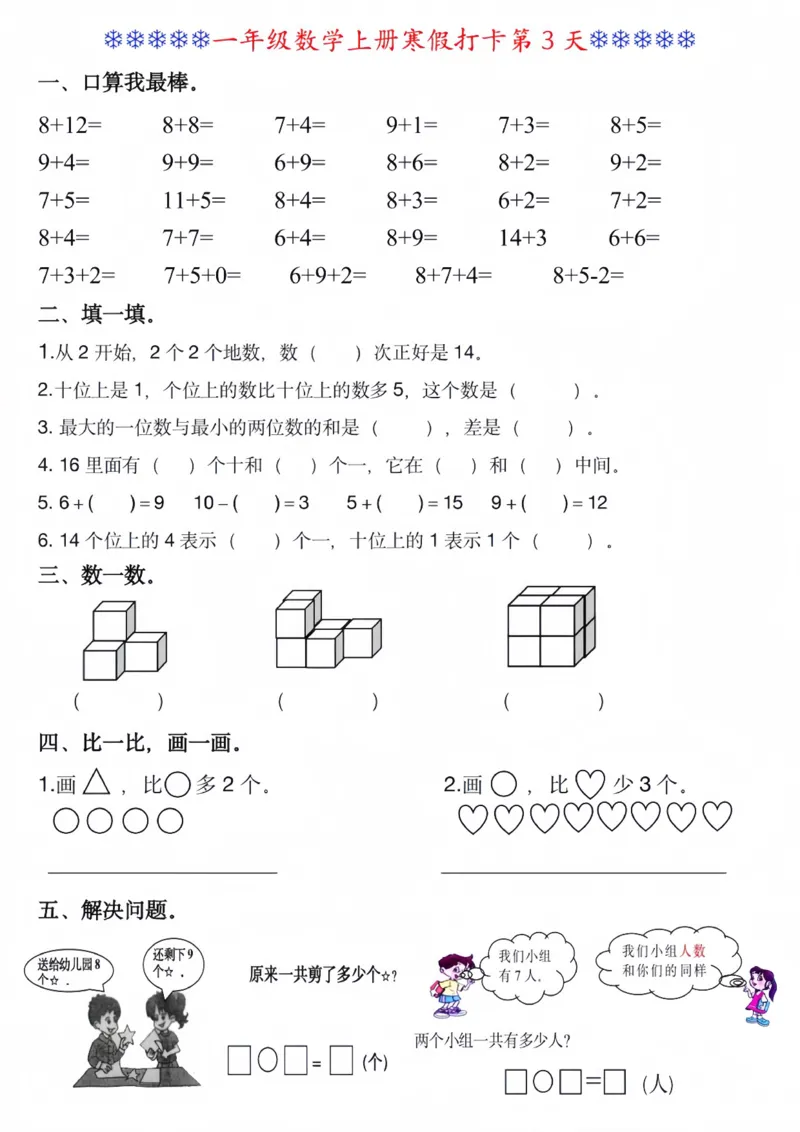 ❄❄❄❄❄一年级数学上册寒假打卡第 3 天❄❄❄❄❄
一、口算我最棒。
8+12= 8+8= 7+4= 9+1= 7+3= 8+5=
9+4= 9+9= 6+9= 8+6= 8+2= 9+2=
7+5= 11+5= 8+4= 8+3= 6+2= 7+2=
8+4= 7+7= 6+4= 8+9= 14+3 6+6=
7+3+2= 7+5+0= 6+9+2= 8+7+4= 8+5-2=
二、填一填。
1.从 2 开始，2 个 2 个地数，数（ ）次正好是 14。
2.十位上是 1，个位上的数比十位上的数多 5，这个数是（ ）。
3. 最大的一位数与最小的两位数的和是（ ），差是（ ）。
4. 16 里面有（ ）个十和（ ）个一，它在（ ）和（ ）中间。
5. 6+( )=9 10-( )=3 5+( )=15 9+( )=12
6. 14 个位上的 4 表示（ ）个一，十位上的 1 表示 1 个（ ）。
三、数一数。
( ) ( ) ( )
四、比一比，画一画。
1.画△，比○多 2 个。 2.画○，比♡少 3 个。
五、解决问题。
送给幼儿园8
个☆．
还剩下9
个☆．
原来一共剪了多少个☆?
□○□=□ (个)
我们小组
有 7 人。
我们小组人数
和你们的同样
两个小组一共有多少人?
□○□=□ (人)